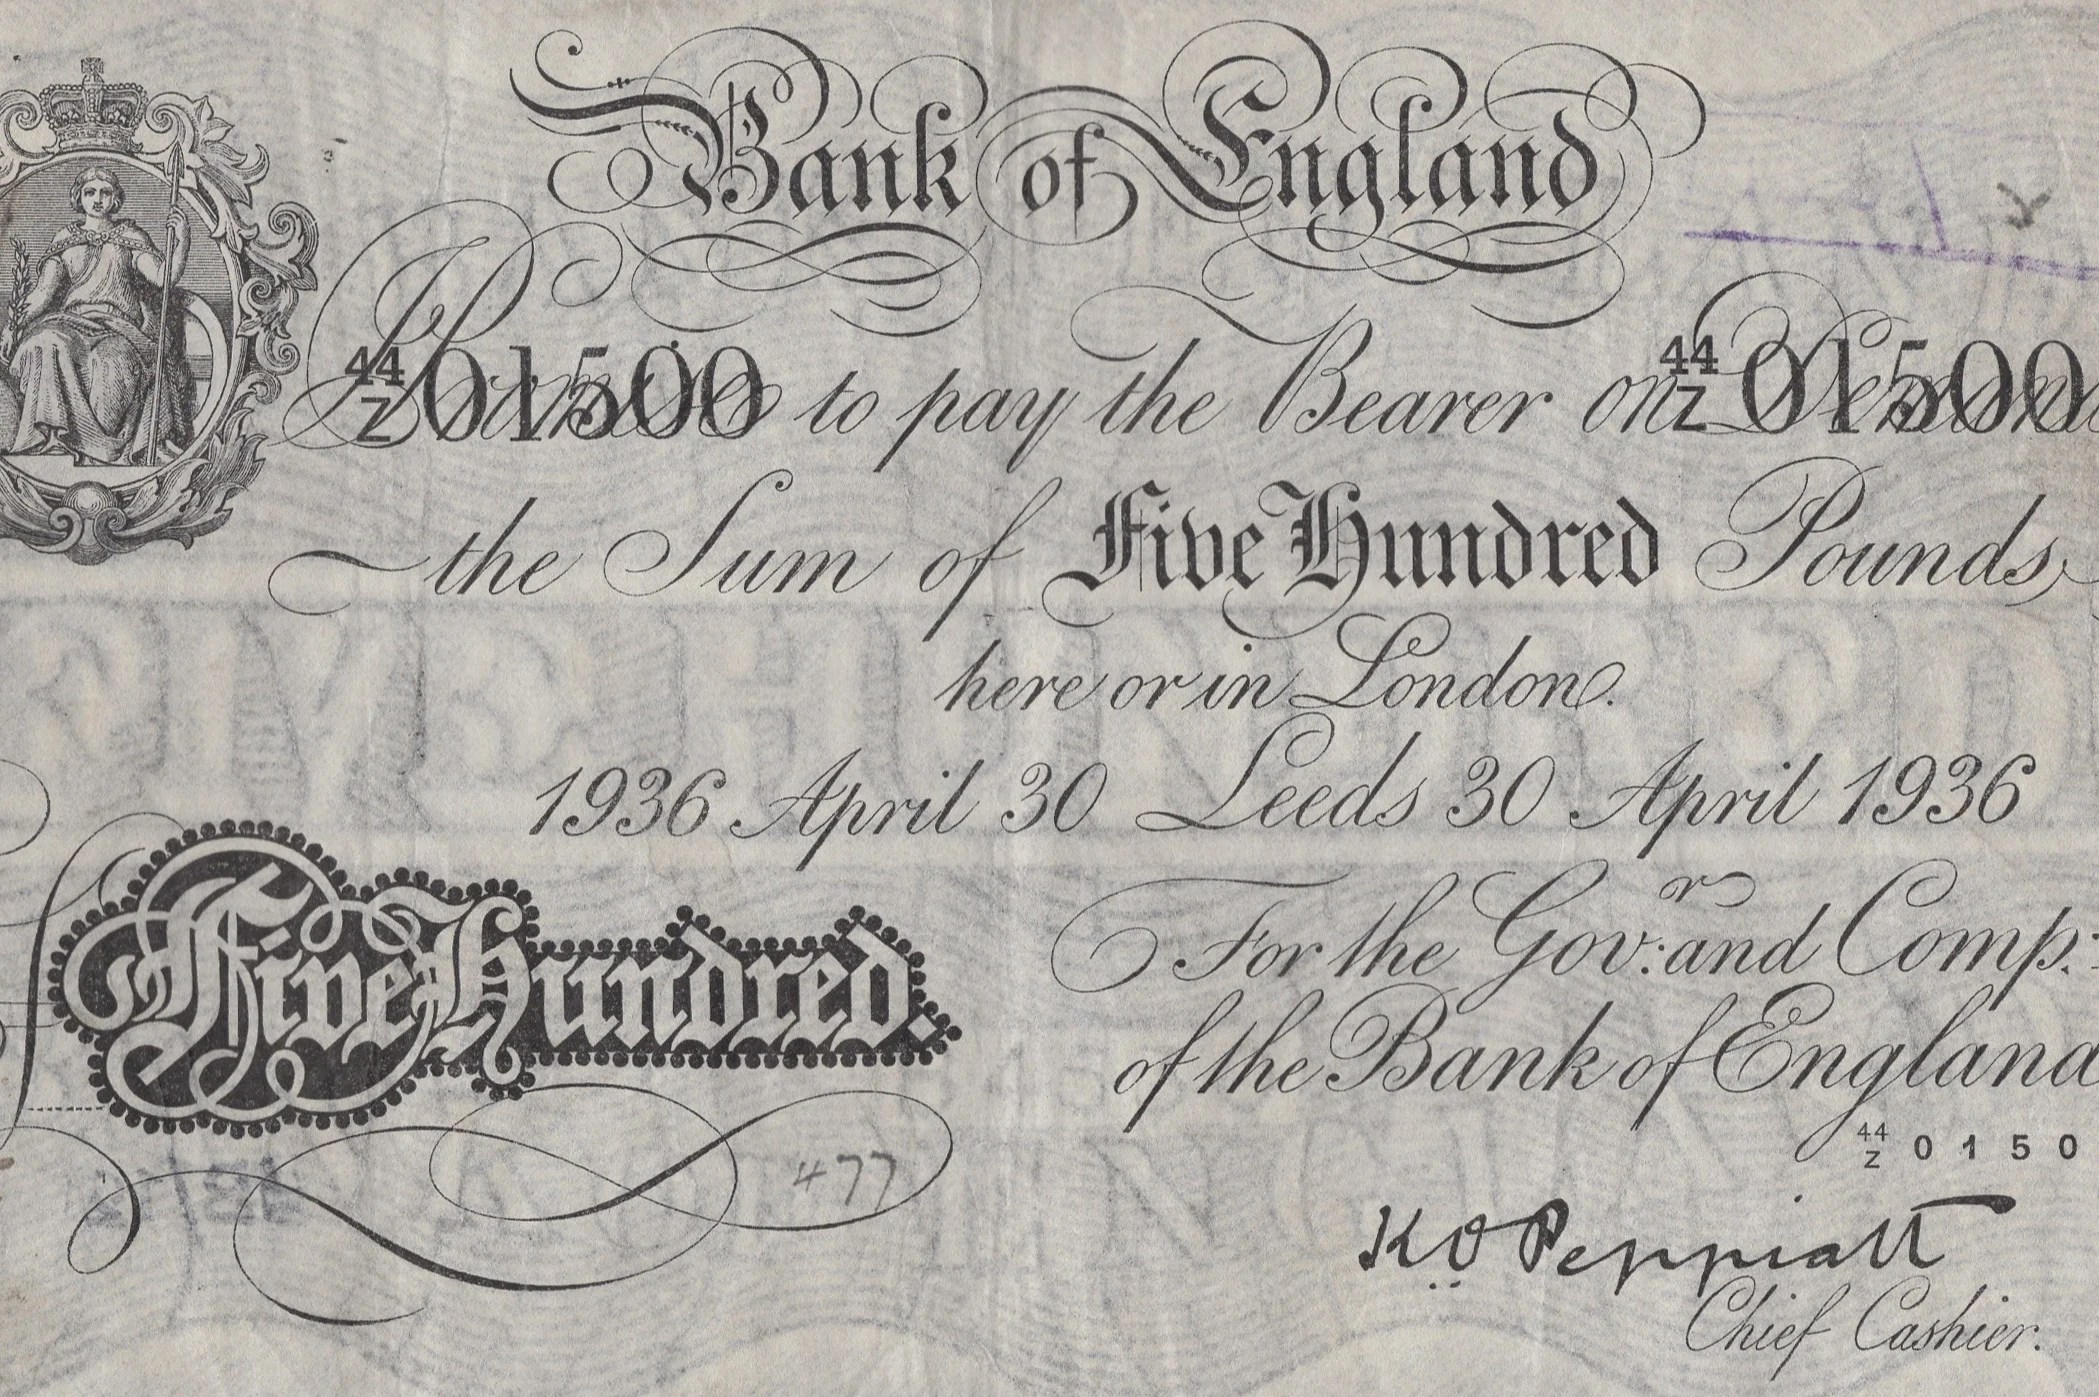 Bank of England
44/Z 01500 Promise to pay the Bearer on Demand 44/Z 01500
the Sum of Five Hundred Pounds
here or in London.
1936 April 30 Leeds 30 April 1936
For the Gov:r and Comp:
Five Hundred.
of the Bank of England
44/Z 0150
477
K O Peppiatt
Chief Cashier.